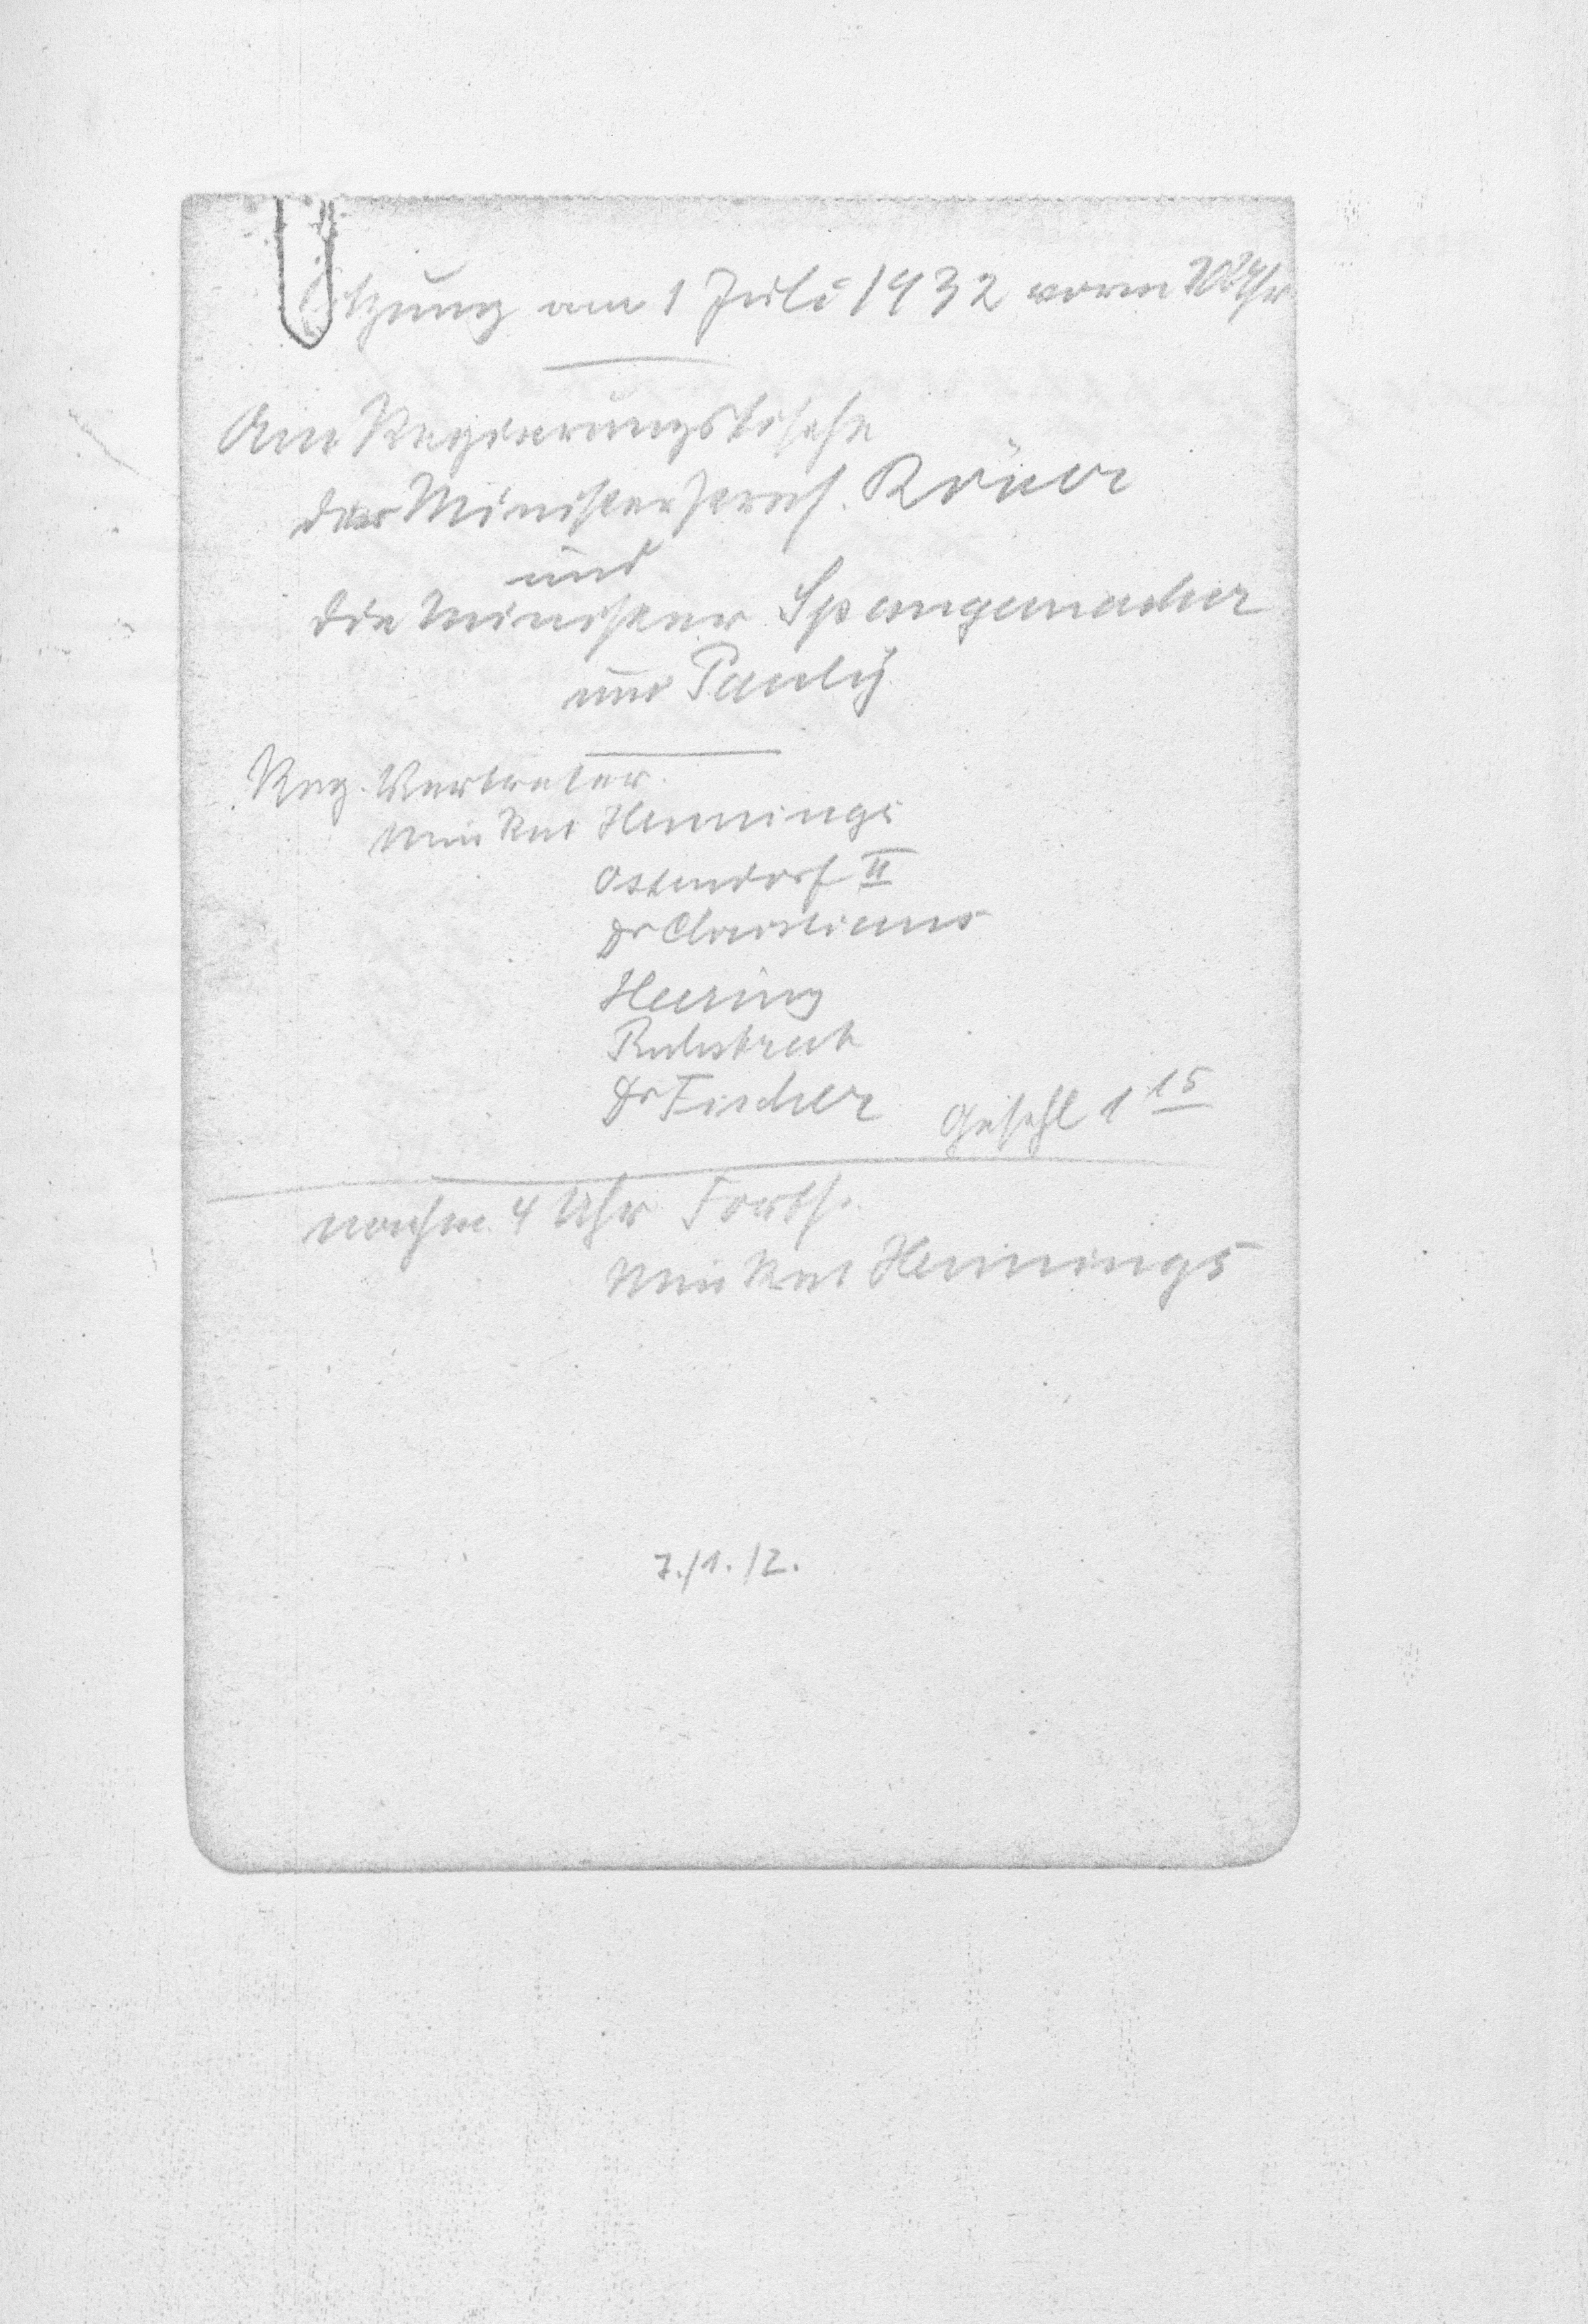 Sitzung am 1 Juli 1932 vorm 10 Uhr
Am Regierungstische
der Ministerpräs. Röver
und
die Minister Spangemacher
und Pauly
Reg. Vertreter.
Min Rat Hennings
Ostendorf II
Dr Christians
Heering
Ruhstrat
Dr Fischer Geschl 1 15
nachm. 4 Uhr Forts.
Min Rat Hennings
7./1./2.